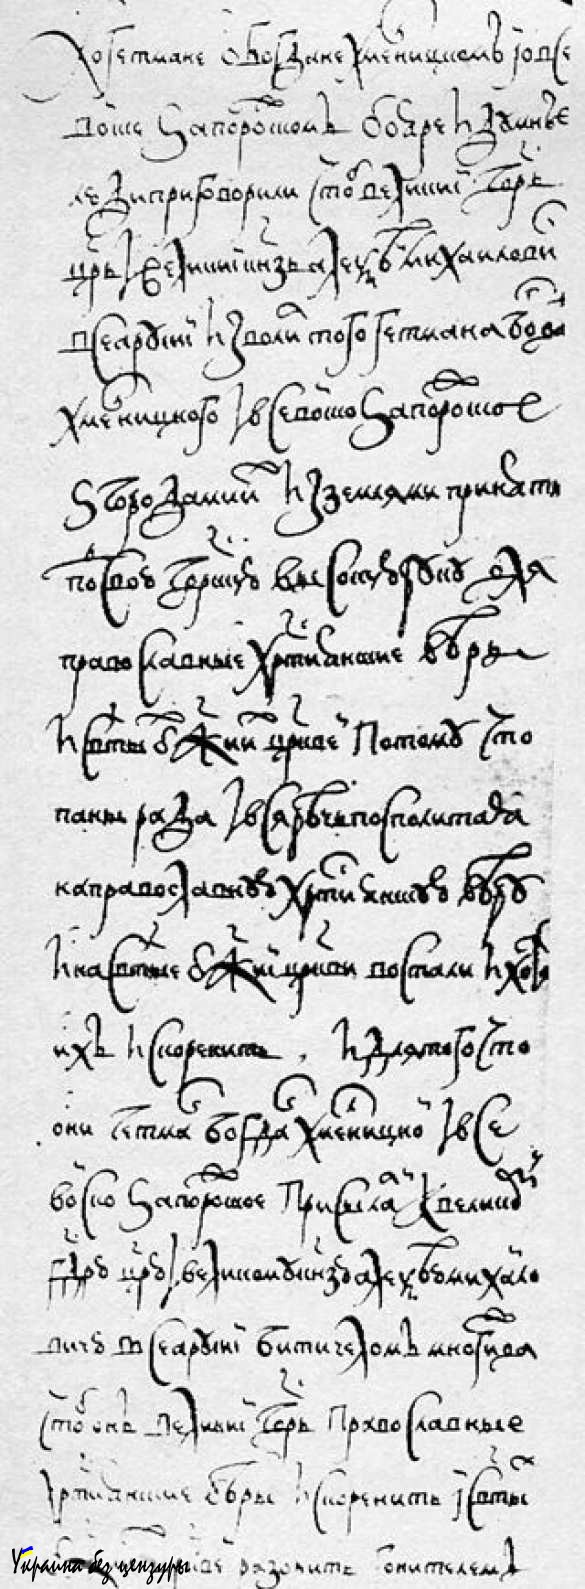 А о гетмане о Богдане Хмелницком и о все
войске Запорожском бояре и думные
люди приговорили чтоб великиі гсдрь
црь і великиі кнзь Алексѣй Михайлович
всеа Русиі изволил того гетмана Богдана
Хмелницкого и все войско Запорожское
з городами их и з землями принять
под свою гсдрскую высокую руку для
православные хрстиянские вѣры
и святых бжиих црквей потому что
паны рада и вся Рѣчь Посполитая
на православную хрстиянскую вѣру
и на святые бжиі цркви востали и хотят
их искоренить, и для того что
они гетман Богдан Хмелницкой и все
войско Запорожское присылали к великому
гсдрю црю і великому кнзю Алексѣю Михайло
вичю всеа Русиі бити челом многижда
чтоб онъ великиі гсдрь православные
хрстиянские вѣры искоренить и святых
разорить гонителем
Украина без цензуры